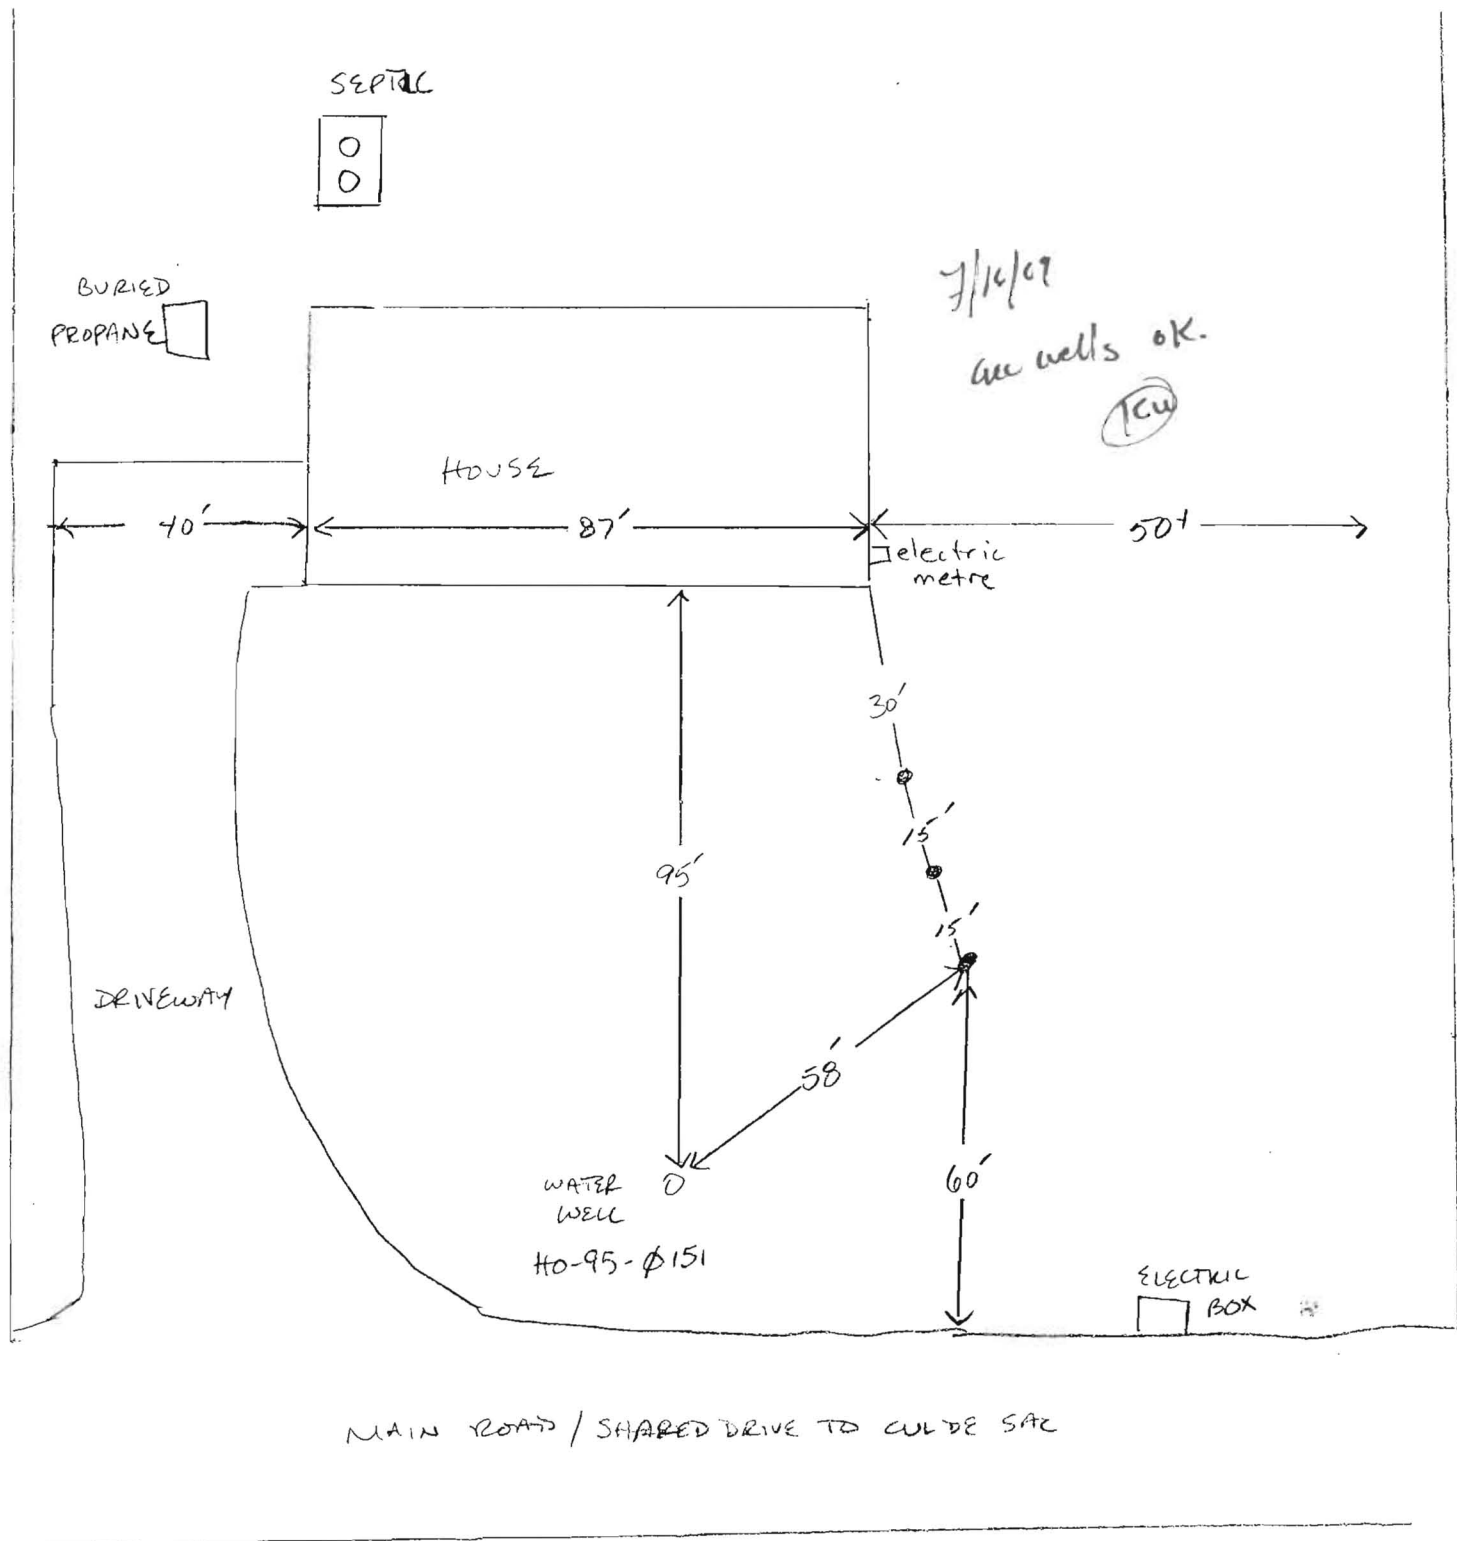 SEPTIC
BURIED
PROPANE
7/16/09
wells OK.
HOUSE
40'
87'
50+
electric
metre
30'
15'
95'
15'
DRIVEWAY
58'
WATER
WELL
60'
HO-95-Ø151
ELECTRIC
BOX
MAIN ROAD / SHARED DRIVE TO CUL DE SAC